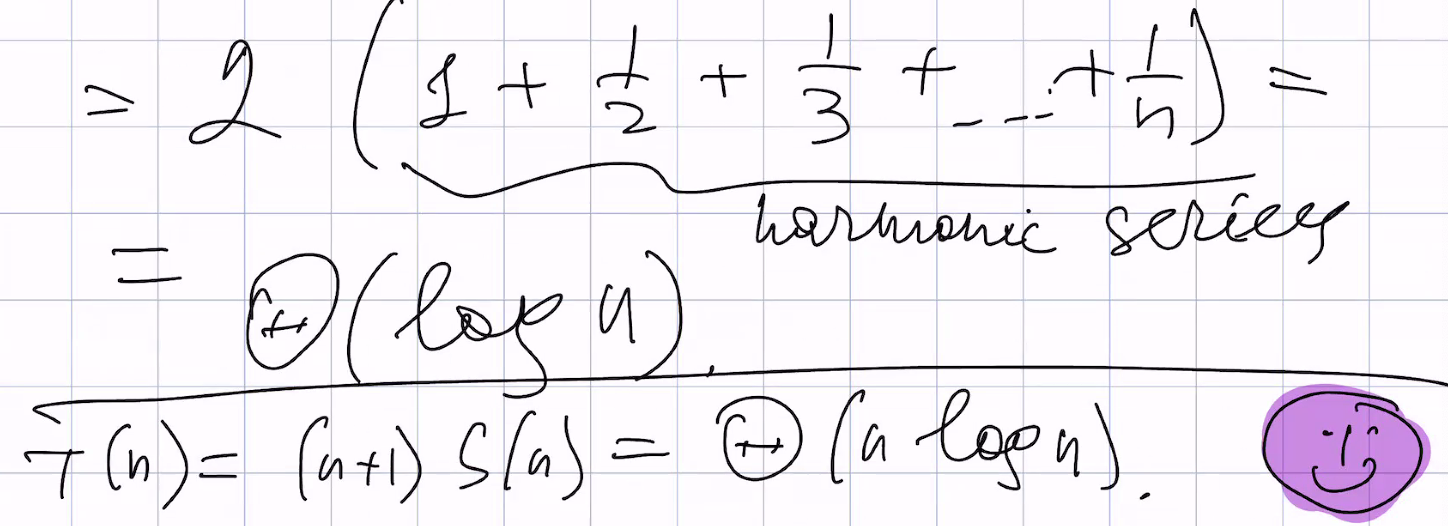 = 2 (1 + 1/2 + 1/3 + ... + 1/n) =
harmonic series
= Θ(log n).
T(n) = (n+1) S(n) = Θ(n log n).